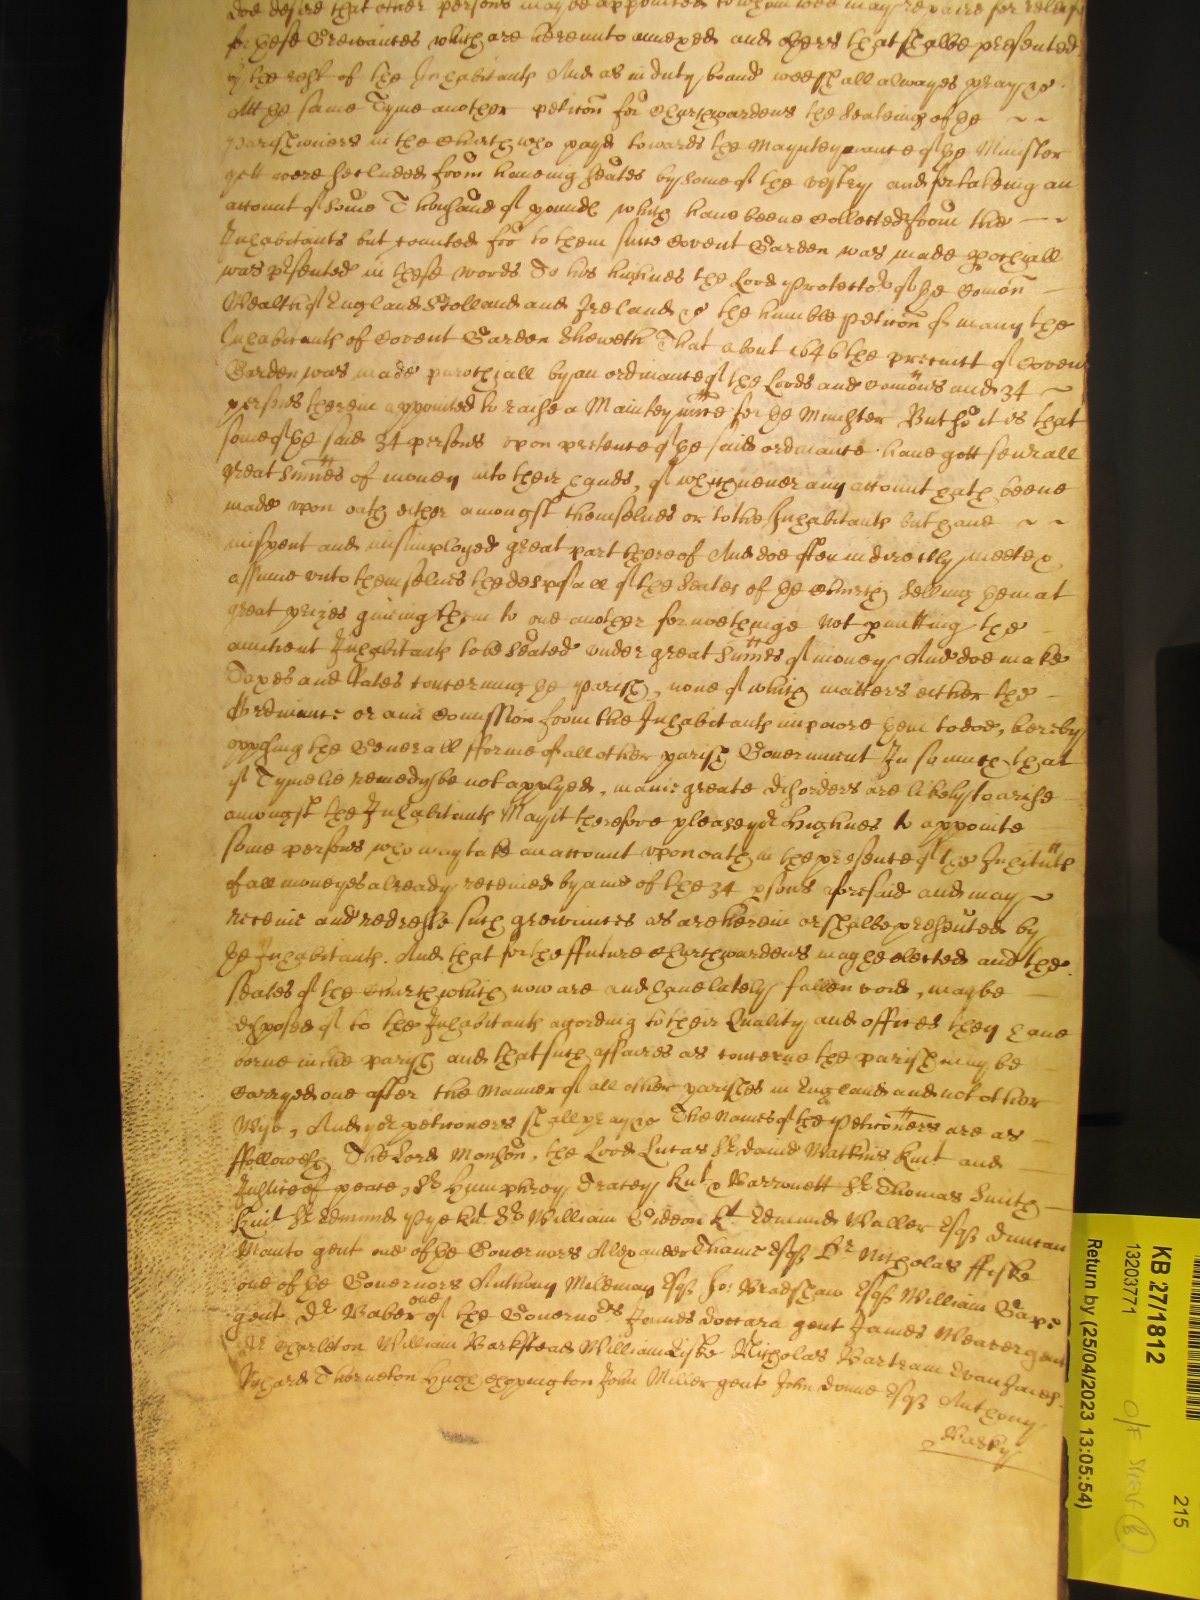 doe desire that other persons may be appointed to whom wee may repaire for releife
for these Greivances which are hereunto annexed and others that shalbe presented
by the rest of the Inhabitants And as in duty bound wee shall alwayes pray &c
Att the same Tyme another peticon for Churchwardens the Seateing of the
parishioners in the Church who payd towards the Maynteynance of the Minister
yett were secluded from haveing seates by some of the vestry and for takeing an
account of some Thousand of pounds which have beene Collected from the
Inhabitants but counted for to them since Covent Garden was made parochiall
was psented in these words To his highnes the Lord Protector of the Comon
Wealth of England Scotland and Ireland &c the humble peticon of many the
Inhabitants of Covent Garden Sheweth That about 1646 the precinct of Covent
Garden was made parochiall by an ordinance of the Lords and Comons and 34
persons therein appointed to raise a Maintenance for the Minister But so it is that
some of the said 34 persons upon pretence of the said ordinance have gott severall
great Sumes of money into their hands, of which never any account hath beene
made upon oath either amongst themselves or to the Inhabitants but have
mispent and misimployed great part thereof And doe often indirectly meete &
assume unto themselves the disposall of the Seates of the Church Selling them at
great prizes giving them to one another for noethinge Not pmitting the
auncient Inhabitants to be Seated under great Sumes of money And doe make
Taxes and Rates concerning the parish, none of which matters either the
Ordinance or anie Comission from the Inhabitants impowre them to doe, hereby
opposing the Generall forme of all other parish Government In so much that
if Tymelie remedy be not applyed, manie greate disorders are likely to arise
amongst the Inhabitants May it therefore please yor Highnes to appointe
some persons who may take an account upon oath in the presence of the Inhitants
of all moneyes already received by anie of the 34 psons aforesaid and may
receive and redresse such greivances as are herein or shalbe presented by
the Inhabitants. And that for the ffuture Churchwardens may be elected and the
seates of the Church which now are and have lately fallen void, may be
disposed of to the Inhabitants acording to their Quality and offices they have
borne in the parish and that such affaires as concerne the parish may be
Carryed one after the Manner of all other parishes in England and not other
Wise, And yor peticoners shall pray &c The Names of the Peticoners are as
ffolloweth The Lord Monson, the Lord Lucas Sr David Watkins knit and
Justice of peace, Sr Humphrey Tracey knt & Barronett Sr Thomas Smith
knit Sr Edmund Pye kt. Sr William Gideon kt Edmund Waller Esqs Duncan
Monto gent one of the Governors Alexander Thaine Esqs Dr Nicholas ffiske
one of the Governors Anthony Mildmay Esqs Jo: Bradshaw Esqs William Gape
gent Dr Baber one of the Governors James Doccara gent James Weaver gent
Dr Charleton William Barkstead William Liske Nicholas Bartram Evan James
Richard Thorneton Hugh Coppington John Miller gent John Donne Esqs Anthony
Basky
KB 27/1812
215
13203771
Return by (25/04/2023 13:05:54)